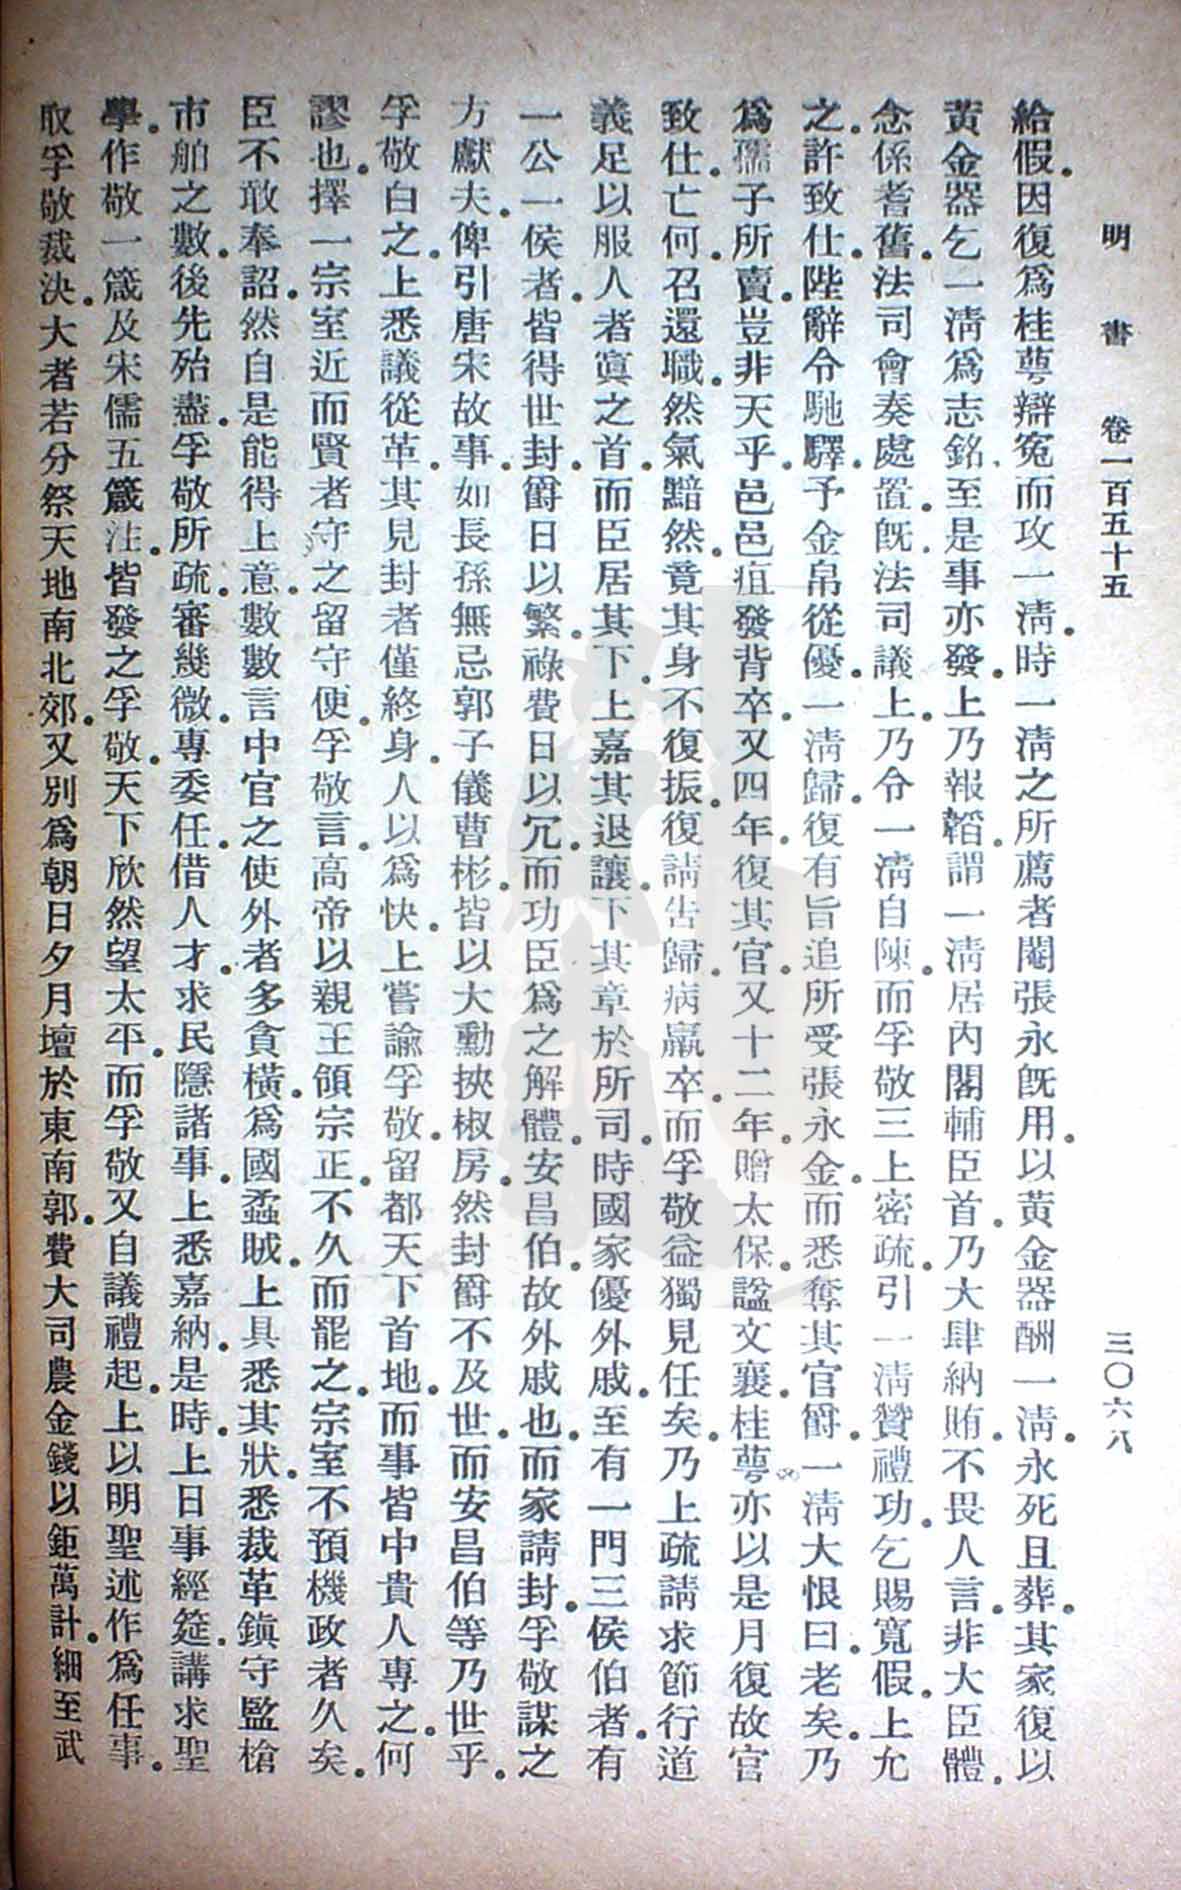 明書 卷一百五十五 三〇六八
給假。因復爲桂萼辯寃而攻一淸。時一淸之所薦者閹張永旣用。以黃金器酬一淸。永死且葬。其家復以
黃金器乞一淸爲志銘。至是事亦發。上乃報韜。謂一淸居內閣輔臣首。乃大肆納賄。不畏人言。非大臣體。
念係耆舊。法司會奏處置。旣法司議上。乃令一淸自陳。而孚敬三上密疏。引一淸贊禮功。乞賜寬假。上允
之。許致仕。陛辭令馳驛。予金帛從優。一淸歸。復有旨追所受張永金。而悉奪其官爵。一淸大恨曰。老矣。乃
爲孺子所賣。豈非天乎。邑邑疽發背卒。又四年。復其官。又十二年。贈太保。諡文襄。桂萼亦以是月復故官
致仕。亡何。召還職。然氣黯然。竟其身不復振。復請告歸。病羸卒。而孚敬益獨見任矣。乃上疏請求節行道
義足以服人者眞之首。而臣居其下。上嘉其退讓。下其章於所司。時國家優外戚。至有一門三侯伯者。有
一公一侯者。皆得世封。爵日以繁。祿費日以冗。而功臣爲之解體。安昌伯故外戚也。而家請封。孚敬謀之
方獻夫。俾引唐宋故事。如長孫無忌郭子儀曹彬。皆以大勳挾椒房。然封爵不及世。而安昌伯等乃世乎。
孚敬白之。上悉議從革。其見封者僅終身。人以爲快。上嘗諭孚敬。留都天下首地。而事皆中貴人專之。何
謬也。擇一宗室近而賢者守之留守便。孚敬言。高帝以親王領宗正。不久而罷之。宗室不預機政者久矣。
臣不敢奉詔。然自是能得上意。數數言中官之使外者多貪橫。爲國蟊賊。上具悉其狀。悉裁革鎭守監槍
市舶之數。後先殆盡。孚敬所疏。審幾微。專委任。借人才。求民隱諸事。上悉嘉納。是時。上日事經筵。講求聖
學。作敬一箴及宋儒五箴注。皆發之孚敬。天下欣然望太平。而孚敬又自議禮起。上以明聖述作爲任。事
取孚敬裁决。大者若分祭天地南北郊。又別爲朝日夕月壇於東南郭。費大司農金錢以鉅萬計。細至武